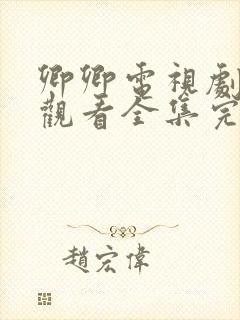 卿卿電視劇
觀看全集完
趙宏偉